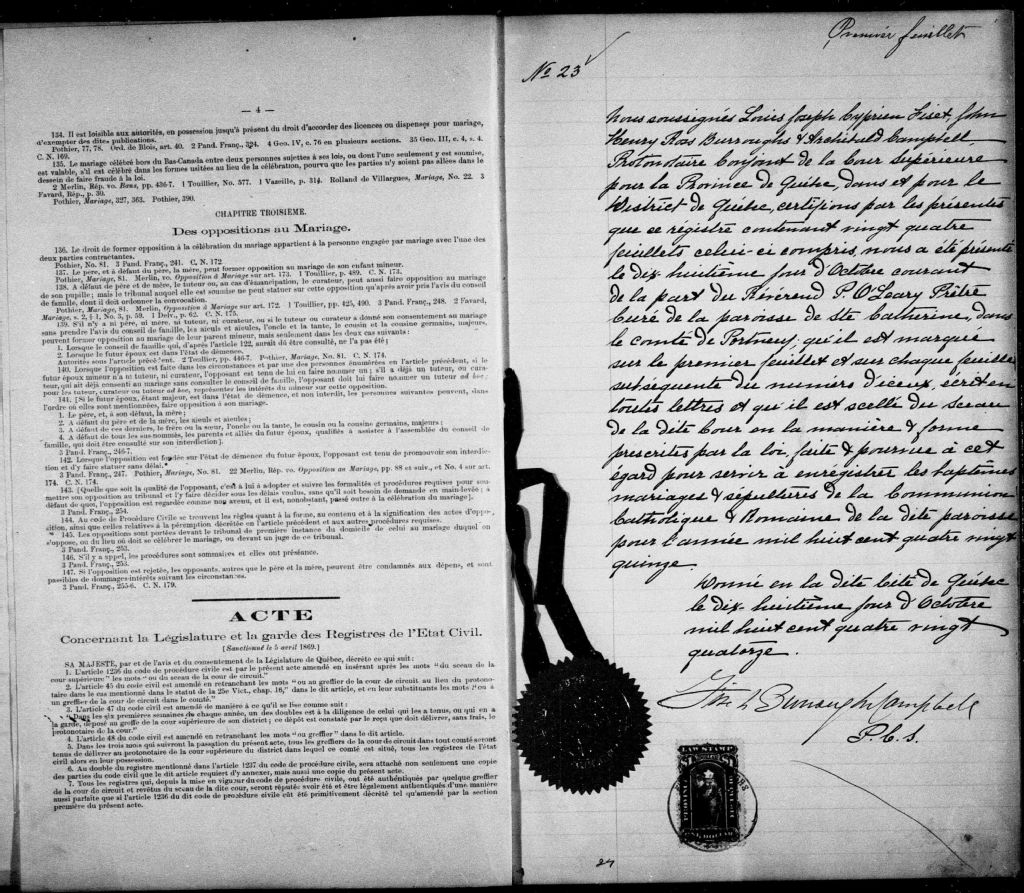 — 4 —
134. Il est loisible aux autorités, en possession jusqu'à présent du droit d'accorder des licences ou dispenses pour mariage,
d'exempter des dites publications.
Pothier, 77, 78. Ord. de Blois, art. 40. 2 Pand. Franç., 324. 4 Geo. IV, c. 76 en plusieurs sections. 35 Geo. III, c. 4, s. 4.
C. N. 169.
135. Le mariage célébré hors du Bas-Canada entre deux personnes sujettes à ses lois, ou dont l'une seulement y est soumise,
est valable, s'il est célébré dans les formes usitées au lieu de la célébration, pourvu que les parties n'y soient pas allées dans le
dessein de faire fraude à la loi.
2 Merlin, Rép. vo. Bans, pp. 436-7. 1 Touillier, No. 577. 1 Vazeille, p. 314. Rolland de Villargues, Mariage, No. 22. 3
Favard, Rép., p. 30.
Pothier, Mariage, 327, 363. Pothier, 390.
CHAPITRE TROISIÈME.
Des oppositions au Mariage.
136. Le droit de former opposition à la célébration du mariage appartient à la personne engagée par mariage avec l'une des
deux parties contractantes.
Pothier, No. 81. 3 Pand. Franç., 241. C. N. 172.
137. Le père, et à défaut du père, la mère, peut former opposition au mariage de son enfant mineur.
Pothier, Mariage, 81. Merlin, vo. Opposition à Mariage sur art. 173. 1 Touillier, p. 489. C. N. 173.
138. A défaut de père et de mère, le tuteur ou, au cas d'émancipation, le curateur, peut aussi faire opposition au mariage
de son pupille; mais le tribunal auquel elle est soumise ne peut statuer sur cette opposition qu'après avoir pris l'avis du conseil
de famille, dont il doit ordonner la convocation.
Pothier, Mariage, 81. Merlin, Opposition à Mariage sur art. 172. 1 Touillier, pp. 425, 490. 3 Pand. Franç., 248. 2 Favard,
Mariage, s. 2, § 1, No. 3, p. 59. 1 Delv., p. 62. C. N. 175.
139. S'il n'y a ni père, ni mère, ni tuteur, ni curateur, ou si le tuteur ou curateur a donné son consentement au mariage
sans prendre l'avis du conseil de famille, les aïeuls et aïeules, l'oncle et la tante, le cousin et la cousine germains, majeurs,
peuvent former opposition au mariage de leur parent mineur, mais seulement dans les deux cas suivants:
1. Lorsque le conseil de famille qui, d'après l'article 122, aurait dû être consulté, ne l'a pas été;
2. Lorsque le futur époux est dans l'état de démence.
Autorités sous l'article précédent. 2 Touillier, pp. 446-7. Pothier, Mariage, No. 81. C. N. 174.
140. Lorsque l'opposition est faite dans ces circonstances et par une des personnes énumérées en l'article précédent, si le
futur époux mineur n'a ni tuteur, ni curateur, l'opposant est tenu de lui en faire nommer un; s'il a déjà un tuteur, ou cura-
teur, qui ait déjà consenti au mariage sans consulter le conseil de famille, l'opposant doit lui faire nommer un tuteur ad hoc;
pour les tuteur, curateur ou tuteur ad hoc, représenter les intérêts du mineur sur cette opposition.
141. [Si le futur époux, étant majeur, est dans l'état de démence, et non interdit, les personnes suivantes peuvent, dans
l'ordre où elles sont mentionnées, faire opposition à son mariage.
1. Le père, et, à son défaut, la mère;
2. A défaut du père et de la mère, les aïeuls et aïeules;
3. A défaut de ces derniers, le frère ou la sœur, l'oncle ou la tante, le cousin ou la cousine germains, majeurs;
4. A défaut de tous les sus-nommés, les parents et alliés du futur époux, qualifiés à assister à l'assemblée du conseil de
famille, qui doit être consulté sur son interdiction].
3 Pand. Franç., 246-7.
142. Lorsque l'opposition est fondée sur l'état de démence du futur époux, l'opposant est tenu de promouvoir son interdic-
tion et d'y faire statuer sans délai.*
3 Pand. Franç., 247. Pothier, Mariage, No. 81. 22 Merlin, Rép. vo. Opposition au Mariage, pp. 88 et suiv., et No. 4 sur art.
174. C. N. 174.
143. [Quelle que soit la qualité de l'opposant, c'est à lui à adopter et suivre les formalités et procédures requises pour sou-
mettre son opposition au tribunal et l'y faire décider sous les délais voulus, sans qu'il soit besoin de demande en main-levée; à
défaut de quoi, l'opposition est regardée comme non avenue, et il est, nonobstant, passé outre à la célébration du mariage].
3 Pand. Franç., 254.
144. Au code de Procédure Civile se trouvent les règles quant à la forme, au contenu et à la signification des actes d'oppo-
sition, ainsi que celles relatives à la péremption décrétée en l'article précédent et aux autres procédures requises.
145. Les oppositions sont portées devant le tribunal de première instance du domicile de celui au mariage duquel on
s'oppose, ou du lieu où doit se célébrer le mariage, ou devant un juge de ce tribunal.
3 Pand. Franç., 253.
146. S'il y a appel, les procédures sont sommaires et elles ont préséance.
3 Pand. Franç., 253.
147. Si l'opposition est rejetée, les opposants, autres que le père et la mère, peuvent être condamnés aux dépens, et sont
passibles de dommages-intérêts suivant les circonstances.
3 Pand. Franç., 255-6. C. N. 179.
ACTE
Concernant la Législature et la garde des Registres de l'Etat Civil.
[Sanctionné le 5 avril 1869.]
SA MAJESTÉ, par et de l'avis et du consentement de la Législature de Québec, décrète ce qui suit:
1. L'article 1236 du code de procédure civile est par le présent acte amendé en insérant après les mots "du sceau de la
cour supérieure" les mots "ou du sceau de la cour de circuit."
2. L'article 45 du code civil est amendé en retranchant les mots "ou au greffier de la cour de circuit au lieu du protono-
taire dans le cas mentionné dans le statut de la 25e Vict., chap. 16," dans le dit article, et en leur substituants les mots "ou à
un greffier de la cour de circuit dans le comté."
3. L'article 47 du code civil est amendé de manière à ce qu'il se lise comme suit:
"Dans les six premières semaines de chaque année, un des doubles est à la diligence de celui qui les a tenus, ou qui en a
la garde, déposé au greffe de la cour supérieure de son district; ce dépôt est constaté par le reçu que doit délivrer, sans frais, le
protonotaire de la cour."
4. L'article 48 du code civil est amendé en retranchant les mots "ou greffier" dans le dit article.
5. Dans les trois mois qui suivront la passation du présent acte, tous les greffiers de la cour de circuit dans tout comté seront
tenus de délivrer au protonotaire de la cour supérieure du district dans lequel ce comté est situé, tous les registres de l'état
civil alors en leur possession.
6. Au double du registre mentionné dans l'article 1237 du code de procédure civile, sera attaché non seulement une copie
des parties du code que le dit article requiert d'y annexer, mais aussi une copie du présent acte.
7. Tous les registres qui, depuis la mise en vigueur du code de procédure civile, ont été authentiqués par quelque greffier
de la cour de circuit et revêtus du sceau de la dite cour, seront réputés avoir été et être légalement authentiqués d'une manière
aussi parfaite que si l'article 1236 du dit code de procédure civile eût été primitivement décrété tel qu'amendé par la section
première du présent acte.
Premier feuillet
No 23
Nous soussignés Louis Joseph Cyprien Fiset, John
Henry Ross Burroughs & Archibald Campbell,
Protonotaire Conjoint de la Cour Supérieure
pour la Province de Québec, dans et pour le
District de Québec, certifions par les présentes
que ce registre contenant vingt quatre
feuillets celui-ci compris, nous a été présenté
le dix huitième jour d'Octobre courant
de la part du Révérend P. O'Leary Prêtre
Curé de la paroisse de Ste Catherine, dans
le comté de Portneuf, qu'il est marqué
sur le premier feuillet et sur chaque feuillet
subséquents du numéro d'iceux, écrit en
toutes lettres et qu'il est scellé du sceau
de la dite Cour en la manière & forme
prescrites par la loi, faite & pourvue à cet
égard pour servir à enregistrer les baptêmes
mariages & sépultures de la Communion
Catholique & Romaine de la dite paroisse
pour l'année mil huit cent quatre vingt
quinze.
Donné en la dite Cité de Québec
le dix-huitième jour d'Octobre
mil huit cent quatre vingt
quatorze.
Fiset Burroughs Campbell
P.C.S.
LAW STAMP
$1
$1
ONE DOLLAR
24